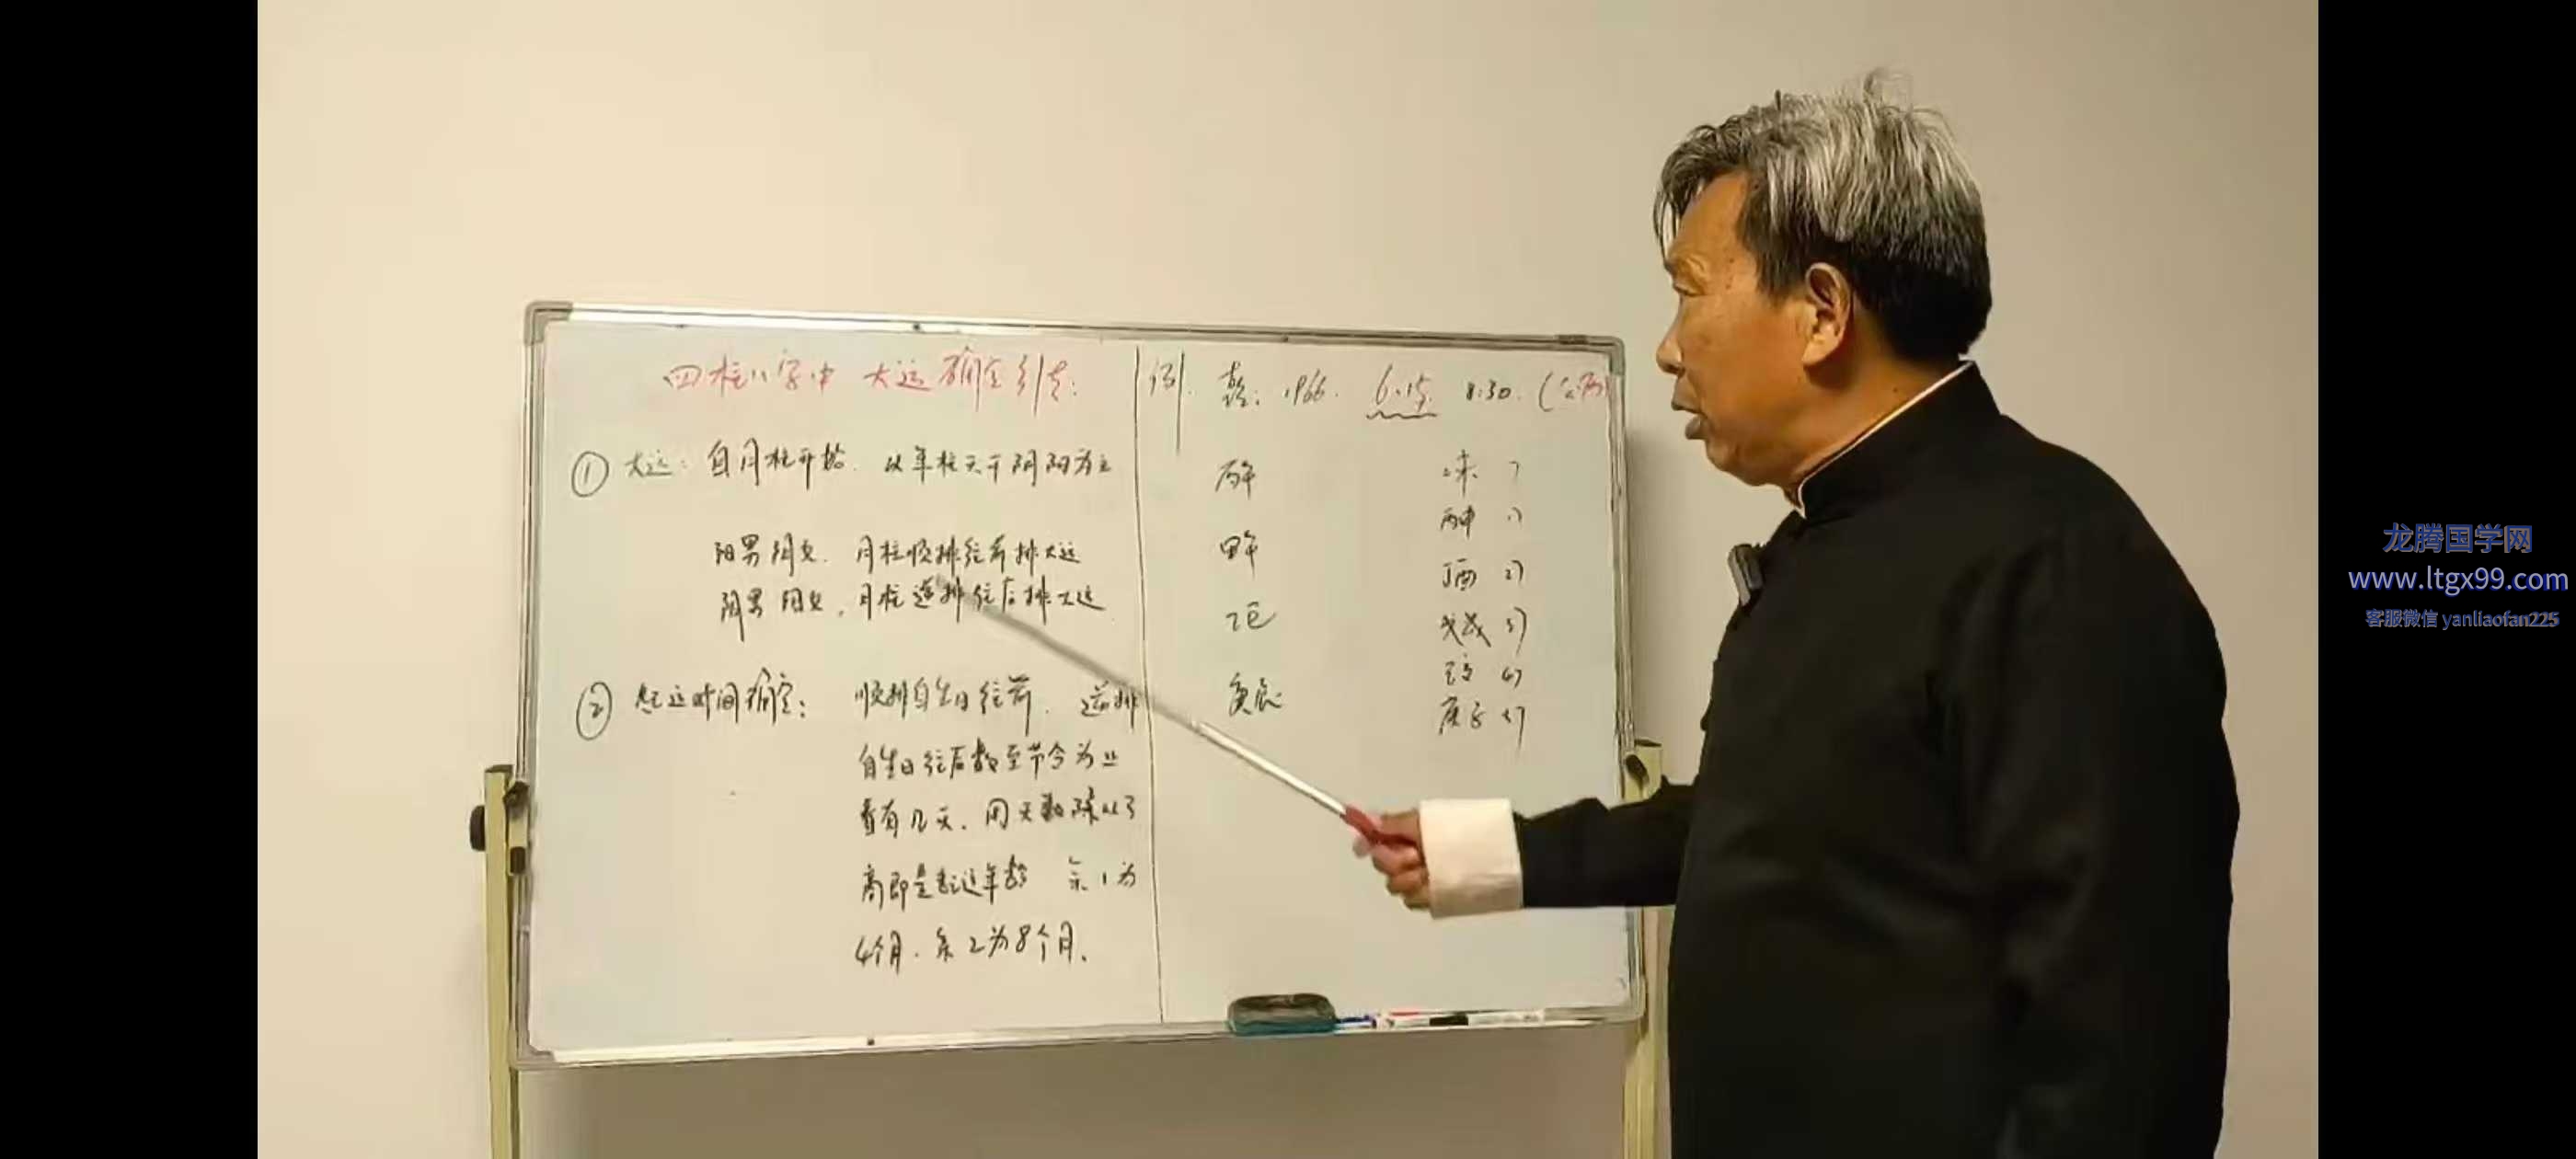 四柱八字中 大运确定引表:
① 大运: 自月柱开始. 以年柱天干阴阳为主
阳男阴女. 月柱顺排往前排大运
阴男阳女. 月柱逆排往后排大运
② 起运时间确定: 顺排自生日往前. 逆排
自生日往后数至节令为止
看有几天. 用天数除以3
商即是起运年龄 余1为
4个月. 余2为8个月.
例. 乾: 1966. 6.15. 8:30. (公历)
丙午
甲午
乙巳
庚辰
乙未 7
丙申 17
丁酉 27
戊戌 37
己亥 47
庚子 57
龙腾国学网
www.ltgx99.com
客服微信 yanliaofan225